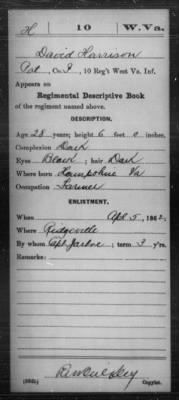 H 10 W.Va.
David Harrison
Pvt., Co. I, 10 Reg't West Va. Inf.
Appears on
Regimental Descriptive Book
of the regiment named above.
DESCRIPTION.
Age 28 years; height 6 feet 0 inches.
Complexion Dark
Eyes Black; hair Dark
Where born Hampshire Va
Occupation Farmer
ENLISTMENT.
When Apl 5, 1862.
Where Ridgeville
By whom Capt Jarboe; term 3 y'rs.
Remarks:
Copyist.